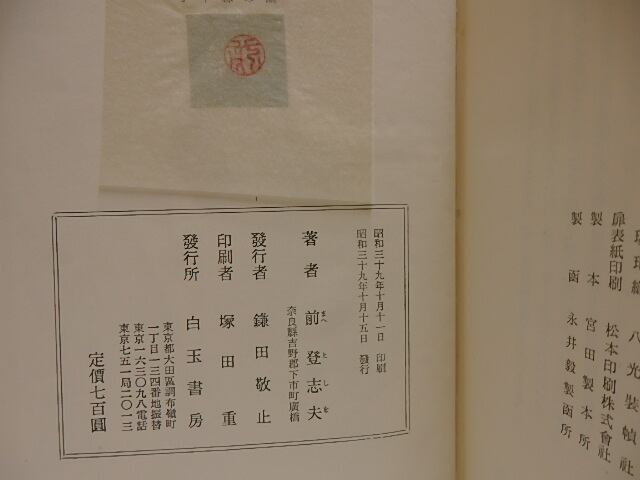 昭和三十九年十月十一日 印刷
昭和三十九年十月十五日 發行
著者 前登志夫
まへ としを
奈良縣吉野郡下市町廣橋
發行者 鎌田敬止
印刷者 塚田重
發行所 白玉書房
東京都大田區調布嶺町
一丁目一三四番地振替
東京一六三〇九八電話
東京七五一局二〇一三
定價七百圓
八光裝幀社
扉表紙印刷 松本印刷株式會社
製本 宮田製本所
製函 永井毅製函所